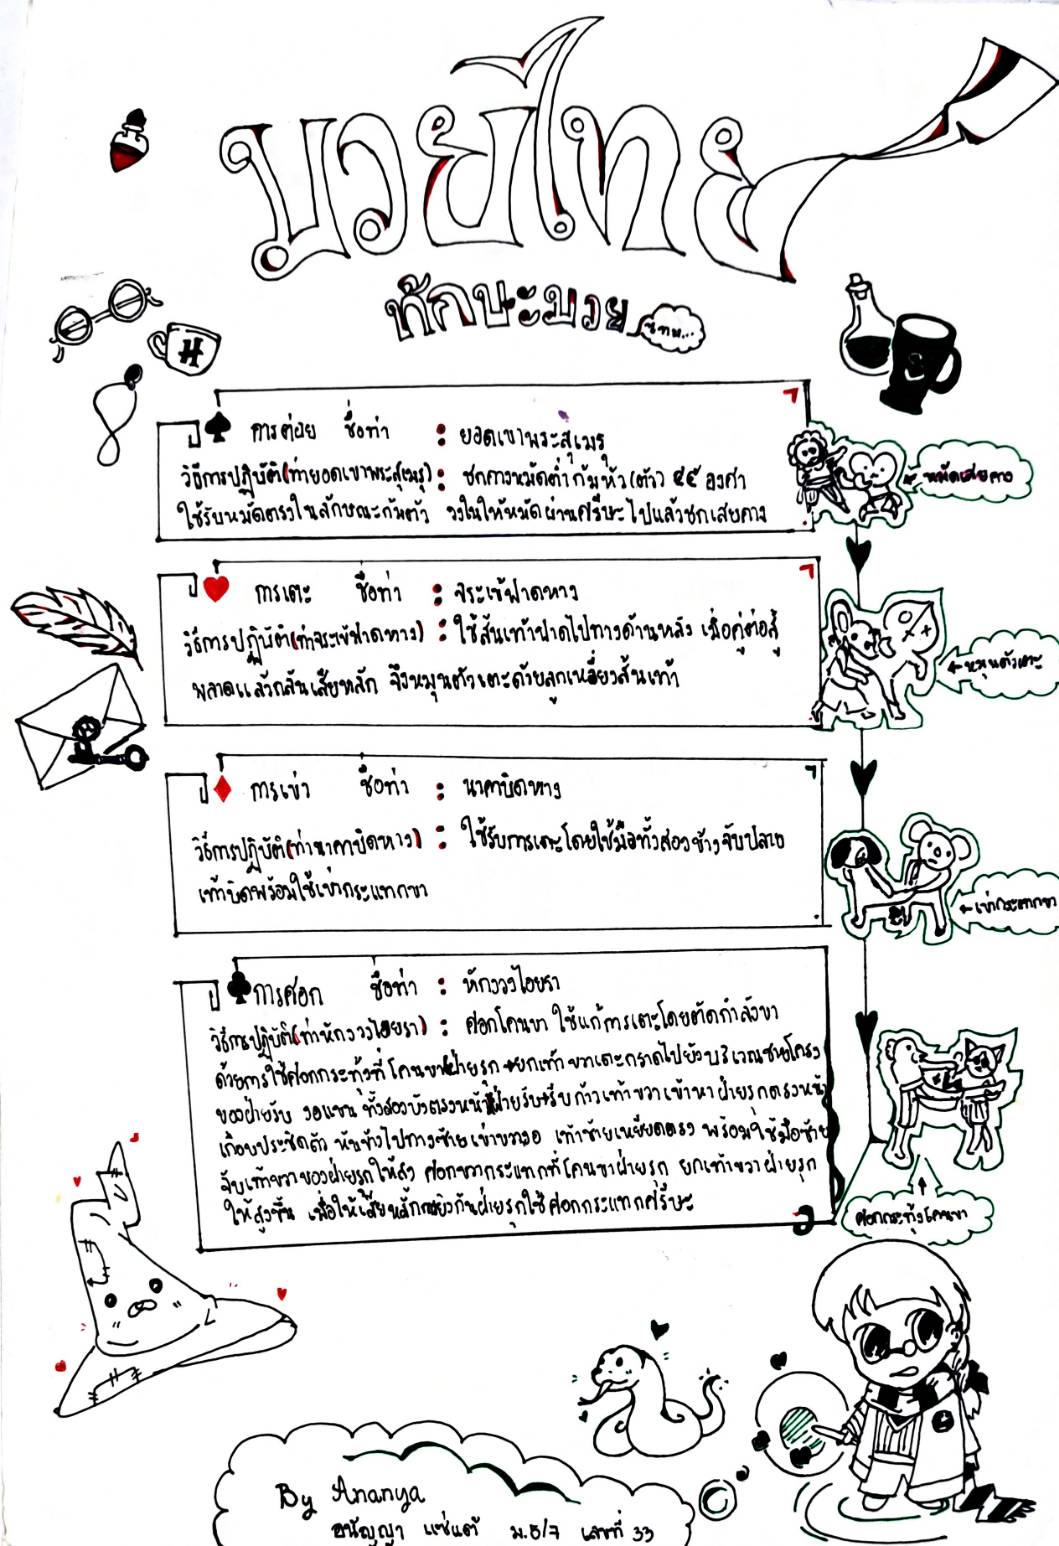 มวยไทย
ทักษะมวย
การต่อย ชื่อท่า : ยอดเขาพระสุเมรุ
วิธีการปฏิบัติ(ท่ายอดเขาพระสุเมรุ) : ชกคางหมัดต่ำก้มหัว(ตัว) ๔๕ องศา
ใช้รับหมัดตรงในลักษณะก้มตัว วงในให้หมัดผ่านศรีษะไปแล้วชกเสยคาง
หมัดเสยคาง
การเตะ ชื่อท่า : จระเข้ฟาดหาง
วิธีการปฏิบัติ(ท่าจระเข้ฟาดหาง) : ใช้ส้นเท้าฟาดไปทางด้านหลัง เมื่อคู่ต่อสู้
พลาดแล้วถลันเสียหลัก จึงหมุนตัวเตะด้วยลูกเหลี่ยวส้นเท้า
หมุนตัวเตะ
การเข่า ชื่อท่า : นาคาบิดหาง
วิธีการปฏิบัติ(ท่านาคาบิดหาง) : ใช้รับการเตะโดยใช้มือทั้งสองข้างจับปลาย
เท้าบิดพร้อมใช้เข่ากระแทกขา
เข่ากระแทกขา
การศอก ชื่อท่า : หักงวงไอยรา
วิธีการปฏิบัติ(ท่าหักงวงไอยรา) : ศอกโคนขา ใช้แก้การเตะโดยตัดกำลังขา
ด้วยการใช้ศอกกระทุ้งที่โคนขา ฝ่ายรุก ยกเท้าขวาเตะกราดไปยังบริเวณชายโครง
ของฝ่ายรับ งอแขนทั้งสองบังตรงหน้า ฝ่ายรับ รีบก้าวเท้าขวาเข้าหาฝ่ายรุกตรงหน้า
เกือบประชิดตัว หันข้างไปทางซ้าย เข่าขวางอ เท้าซ้ายเหยียดตรง พร้อมใช้มือซ้าย
จับเท้าขวาของฝ่ายรุกให้สูง ศอกขวากระแทกที่โคนขาฝ่ายรุก ยกเท้าขวาฝ่ายรุก
ให้สูงขึ้น เพื่อให้เสียหลัก ฝ่ายรุกใช้ศอกกระแทกศรีษะ
ศอกกระทุ้งโคนขา
By Ananya
อนัญญา แซ่แต้ ม.5/7 เลขที่ 33